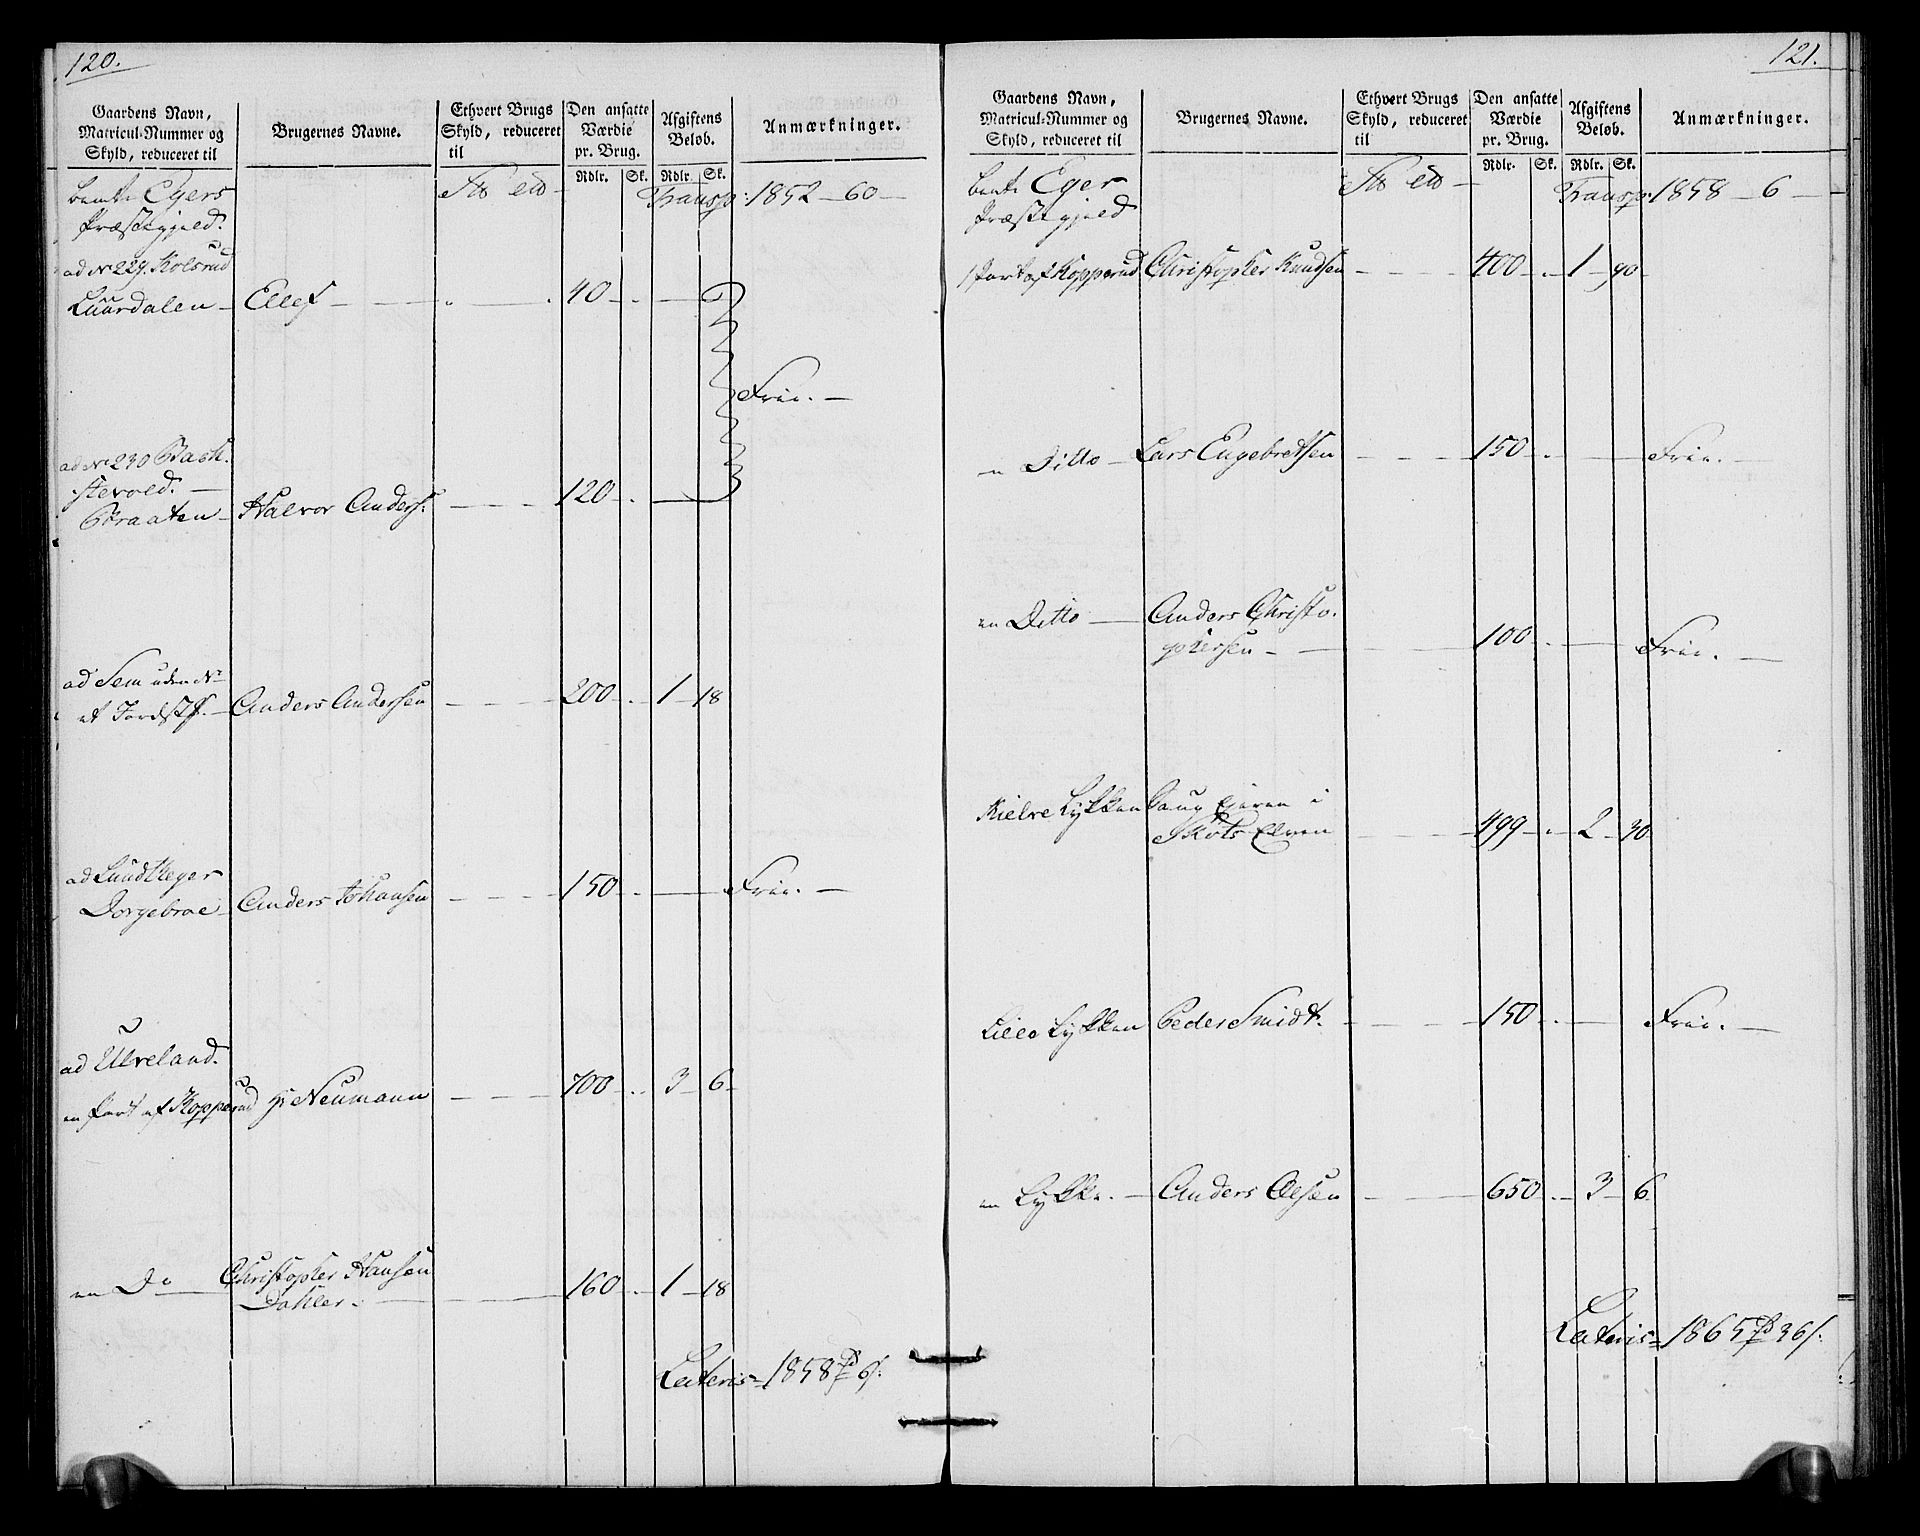 120.
Gaardens Navn,
Matricul-Nummer og
Skyld, reduceret til
Brugernes Navne.
Ethvert Brugs
Skyld, reduceret
til
Den ansatte
Værdie
pr. Brug.
Rdlr. Sk.
Afgiftens
Beløb.
Rdlr. Sk.
Anmærkninger.
Egers
Præstegjeld.
Transp: 1852 — 60 —
ad No 229. Kolsrud
Luurdalen — Ellef — 40 —
Frie. —
ad No 230 Bach-
stevold. —
Braaten — Halvor Anders. — 120 —
ad Sem uden No
et Jordst. — Anders Andersen — 200 — 1 — 18
ad Lundtheger
Dorgebroe — Anders Johansen — 150 — Frie. —
ad Ulveland.
en Part af Kopperud Hr Neumann — 700 — 3 — 6 —
en Do — Christopher Hansen
Dahler — 160 — 1 — 18
Lateris = 1858 Rd 6 s.
121.
Gaardens Navn,
Matricul-Nummer og
Skyld, reduceret til
Brugernes Navne.
Ethvert Brugs
Skyld, reduceret
til
Den ansatte
Værdie
pr. Brug.
Rdlr. Sk.
Afgiftens
Beløb.
Rdlr. Sk.
Anmærkninger.
Eger
Præstegjeld
Transp: 1858 — 6 —
1 Part af Kopperud Christopher Knudsen — 400 — 1 — 90
en Ditto — Lars Engebretsen — 150 — Frie. —
en Ditto — Anders Christo-
phersen — 100 — Frie. —
Lykken Saug Ejeren i
Skots Elven — 499 — 2 — 30
Lille Lykken Peder Smidt. — 150 — Frie. —
en Lykke. — Anders Olsen — 650 — 3 — 6
Lateris = 1865 Rd 36 s.